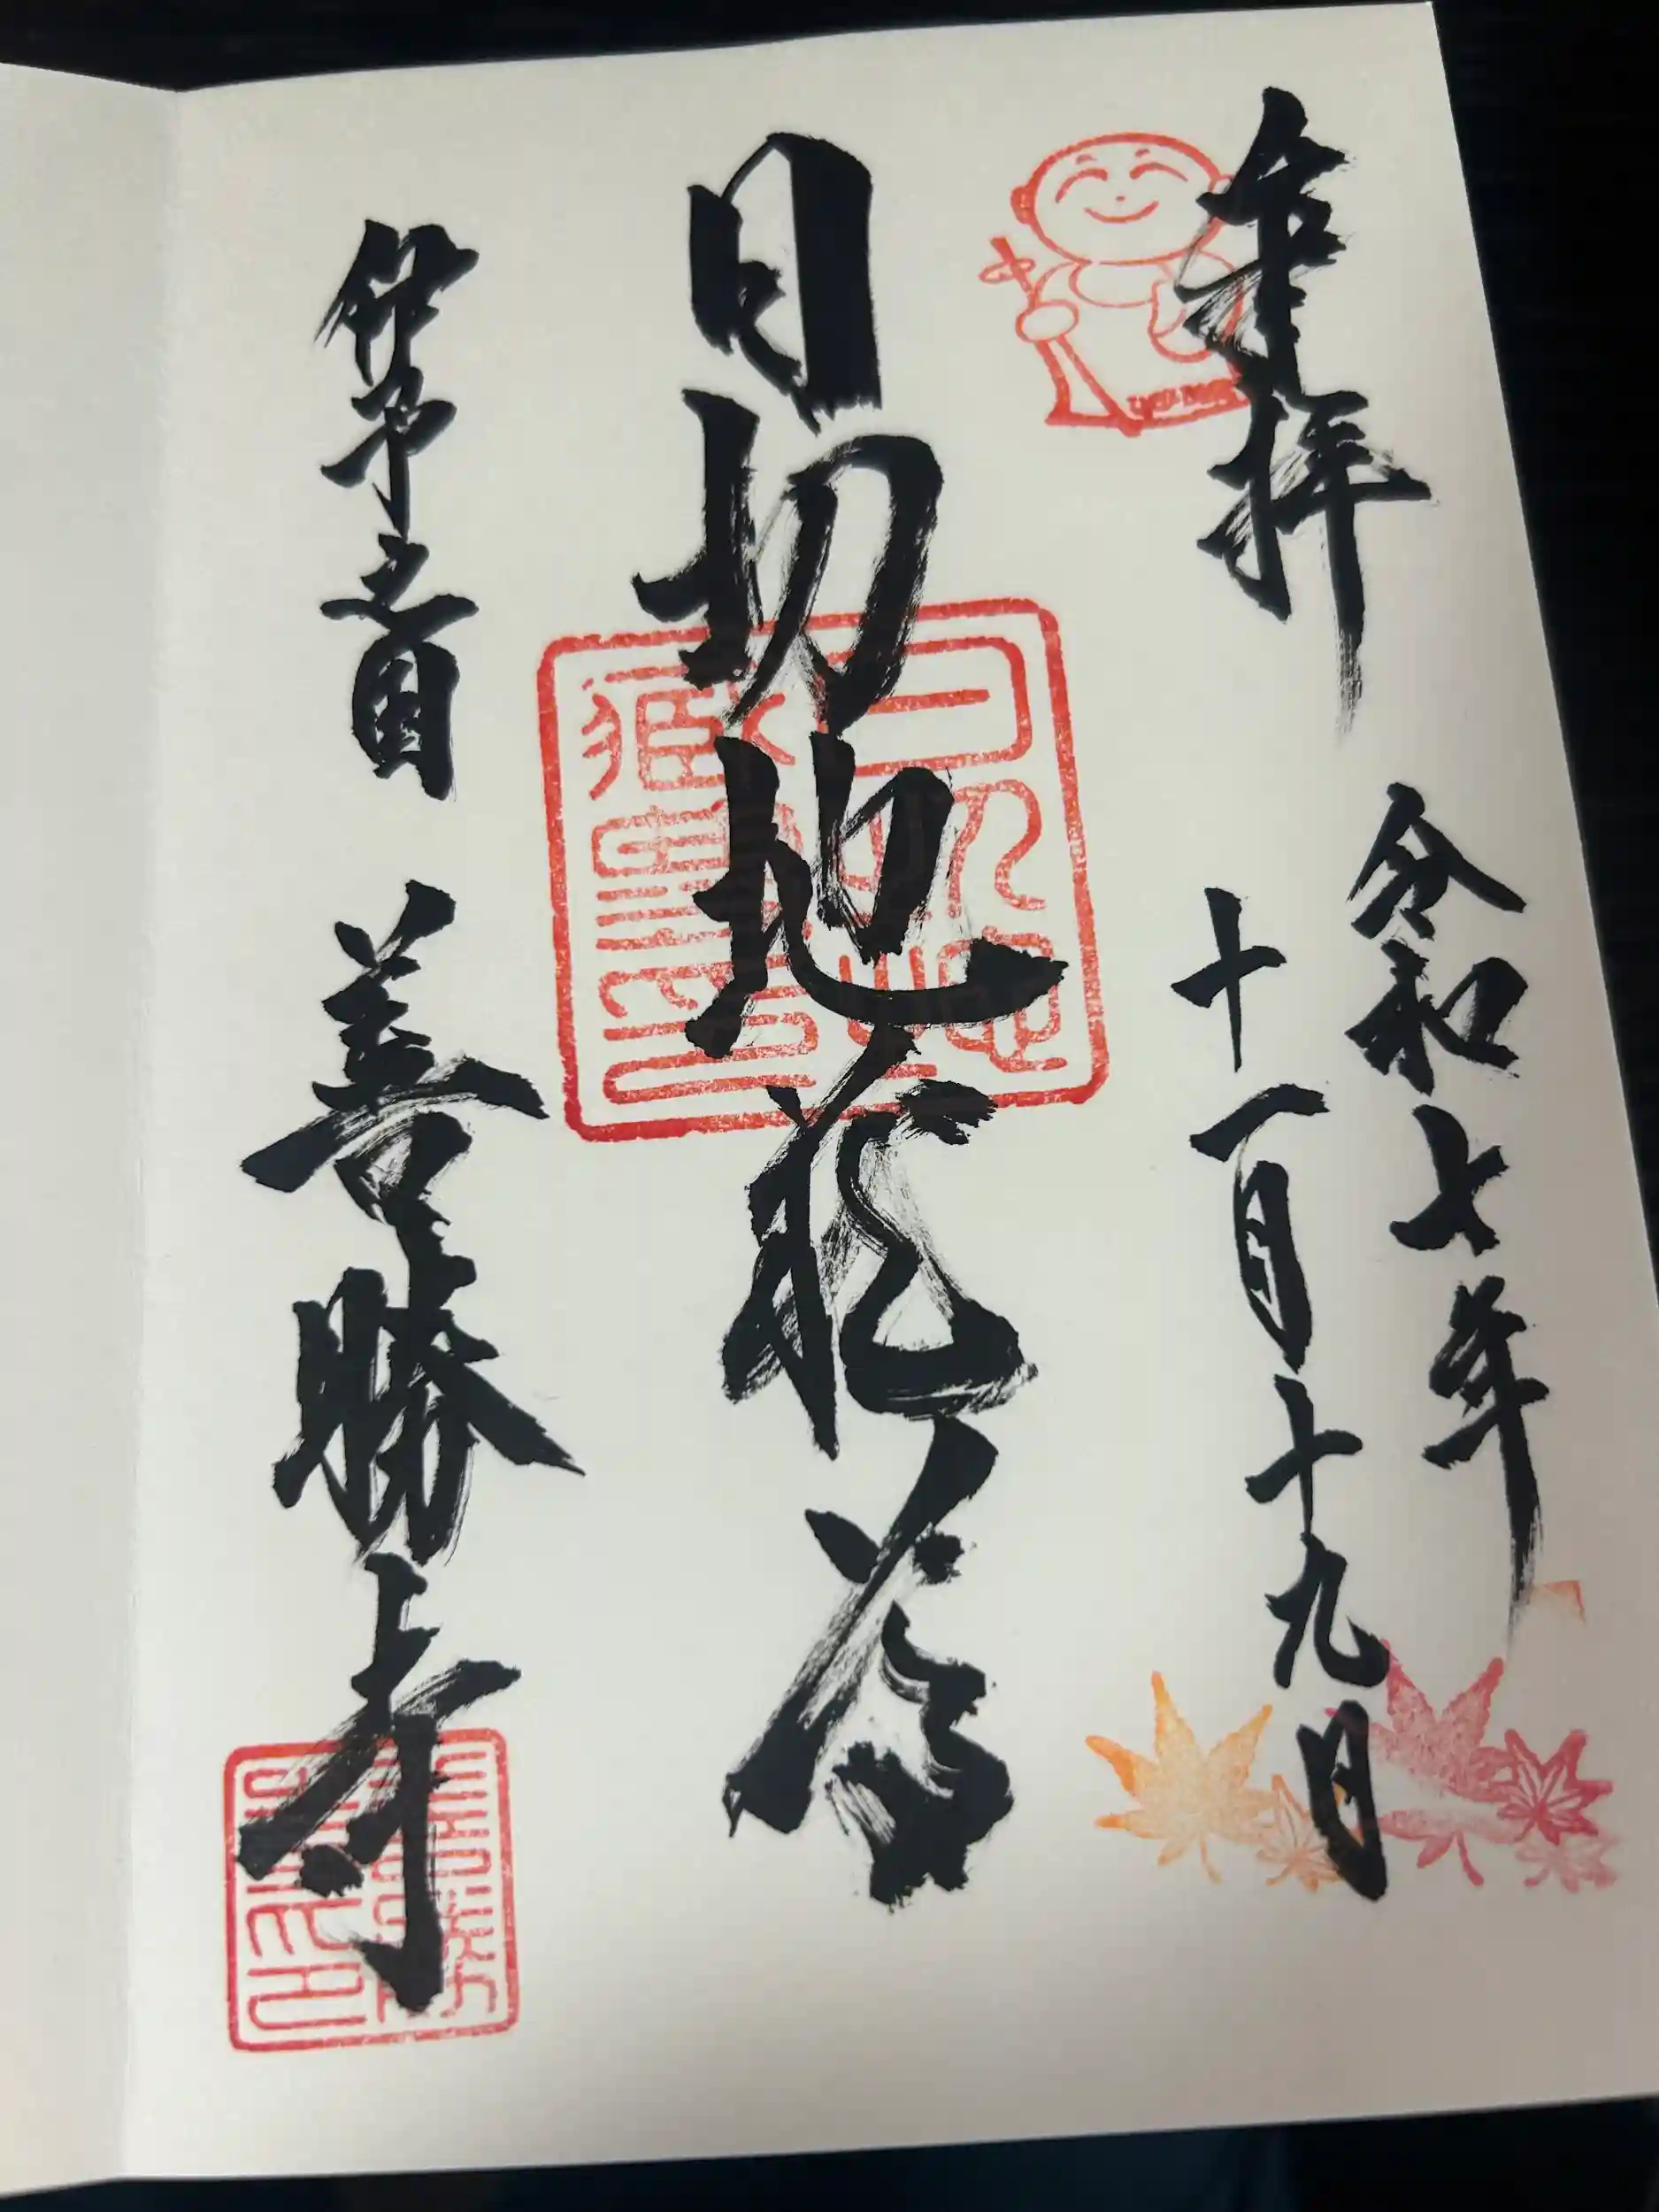 奉拝
令和七年
十一月十九日
日切地蔵尊
伊予之国 善勝寺